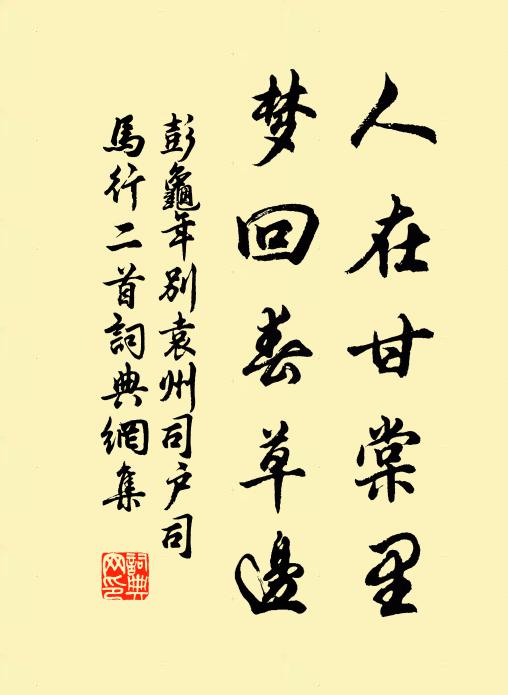 人在甘棠里
梦回春草邊
彭龜年别袁州司户司
馬行二首詞典網集
詞典
网印